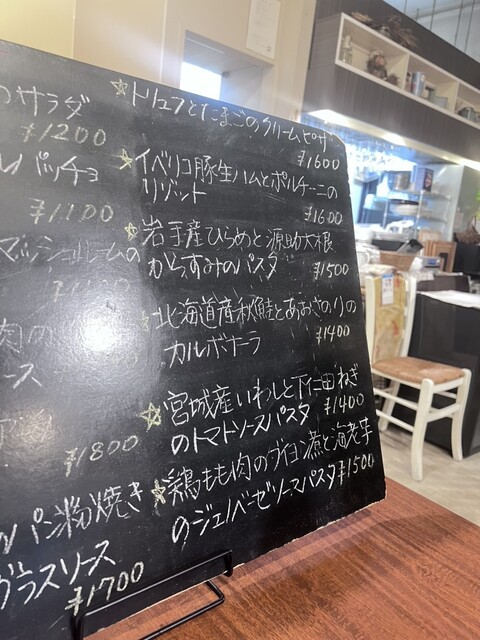 のサラダ
¥1200
パッチョ
¥1100
マッシュルームの
肉の
ース
¥1800
パン粉焼き
グラスソース
¥1700
☆トリュフとたまごのクリームピザ
¥1600
☆イベリコ豚生ハムとポルチーニの
リゾット
¥1600
☆岩手産ひらめと源助大根
からすみのパスタ ¥1500
☆北海道産秋鮭とあおさのりの
カルボナーラ ¥1400
☆宮城産いわしと下仁田ねぎ
のトマトソースパスタ ¥1400
☆鶏もも肉のブイヨン煮と海老芋
のジェノベーゼソースパスタ ¥1500